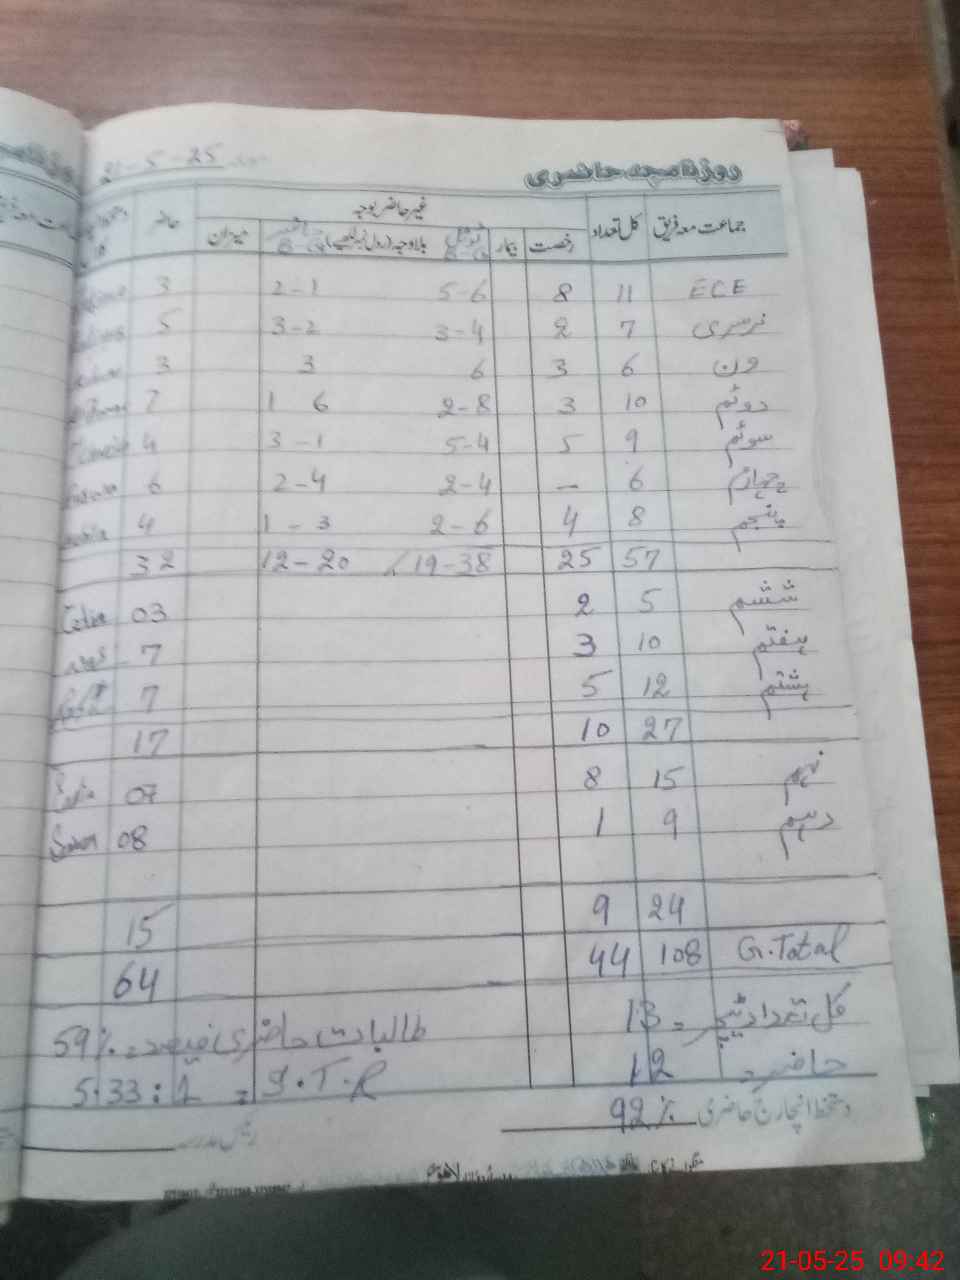 21-5-25
روزنامچہ حاضری
جماعت معہ فریق کل تعداد رخصت بیمار غیر حاضر بوجہ بلاوجہ (رول نمبر لکھیے) میزان حاضر
ECE 11 8 5-6 2-1 3
نرسری 7 2 3-4 3-2 5
ون 6 3 6 3 3
دوئم 10 3 2-8 1 6 7
سوئم 9 5 5-4 3-1 4
چہارم 6 - 2-4 2-4 6
پنجم 8 4 2-6 1-3 4
57 25 19-38 12-20 32
ششم 5 2 03
ہفتم 10 3 7
ہشتم 12 5 7
27 10 17
نہم 15 8 07
دہم 9 1 08
24 9 15
G.Total 108 44 64
کل تعداد ٹیچر = 13 طالبات حاضری فیصد = 59%
حاضر = 12 S.T.R = 5.33:1
دستخط انچارج حاضری 92% رئیس مدرسہ
21-05-25 09:42